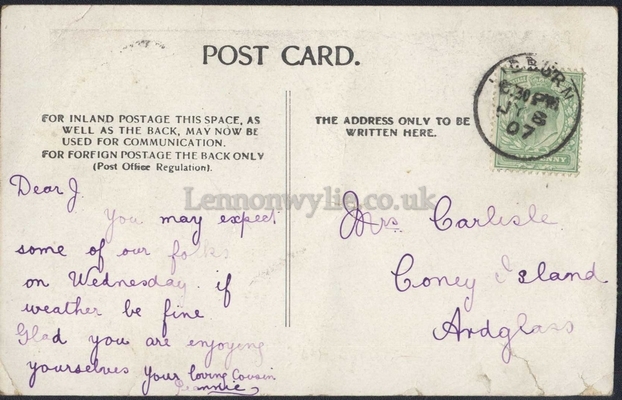 POST CARD.
FOR INLAND POSTAGE THIS SPACE, AS
WELL AS THE BACK, MAY NOW BE
USED FOR COMMUNICATION.
FOR FOREIGN POSTAGE THE BACK ONLY
(Post Office Regulation).
THE ADDRESS ONLY TO BE
WRITTEN HERE.
LISBURN
8.30 PM
JY 8
07
Lennonwylie.co.uk
Dear J.
You may expect
some of our folks
on Wednesday if
weather be fine
Glad you are enjoying
yourselves your loving Cousin
Jeannie
Mrs Carlisle
Coney Island
Ardglass